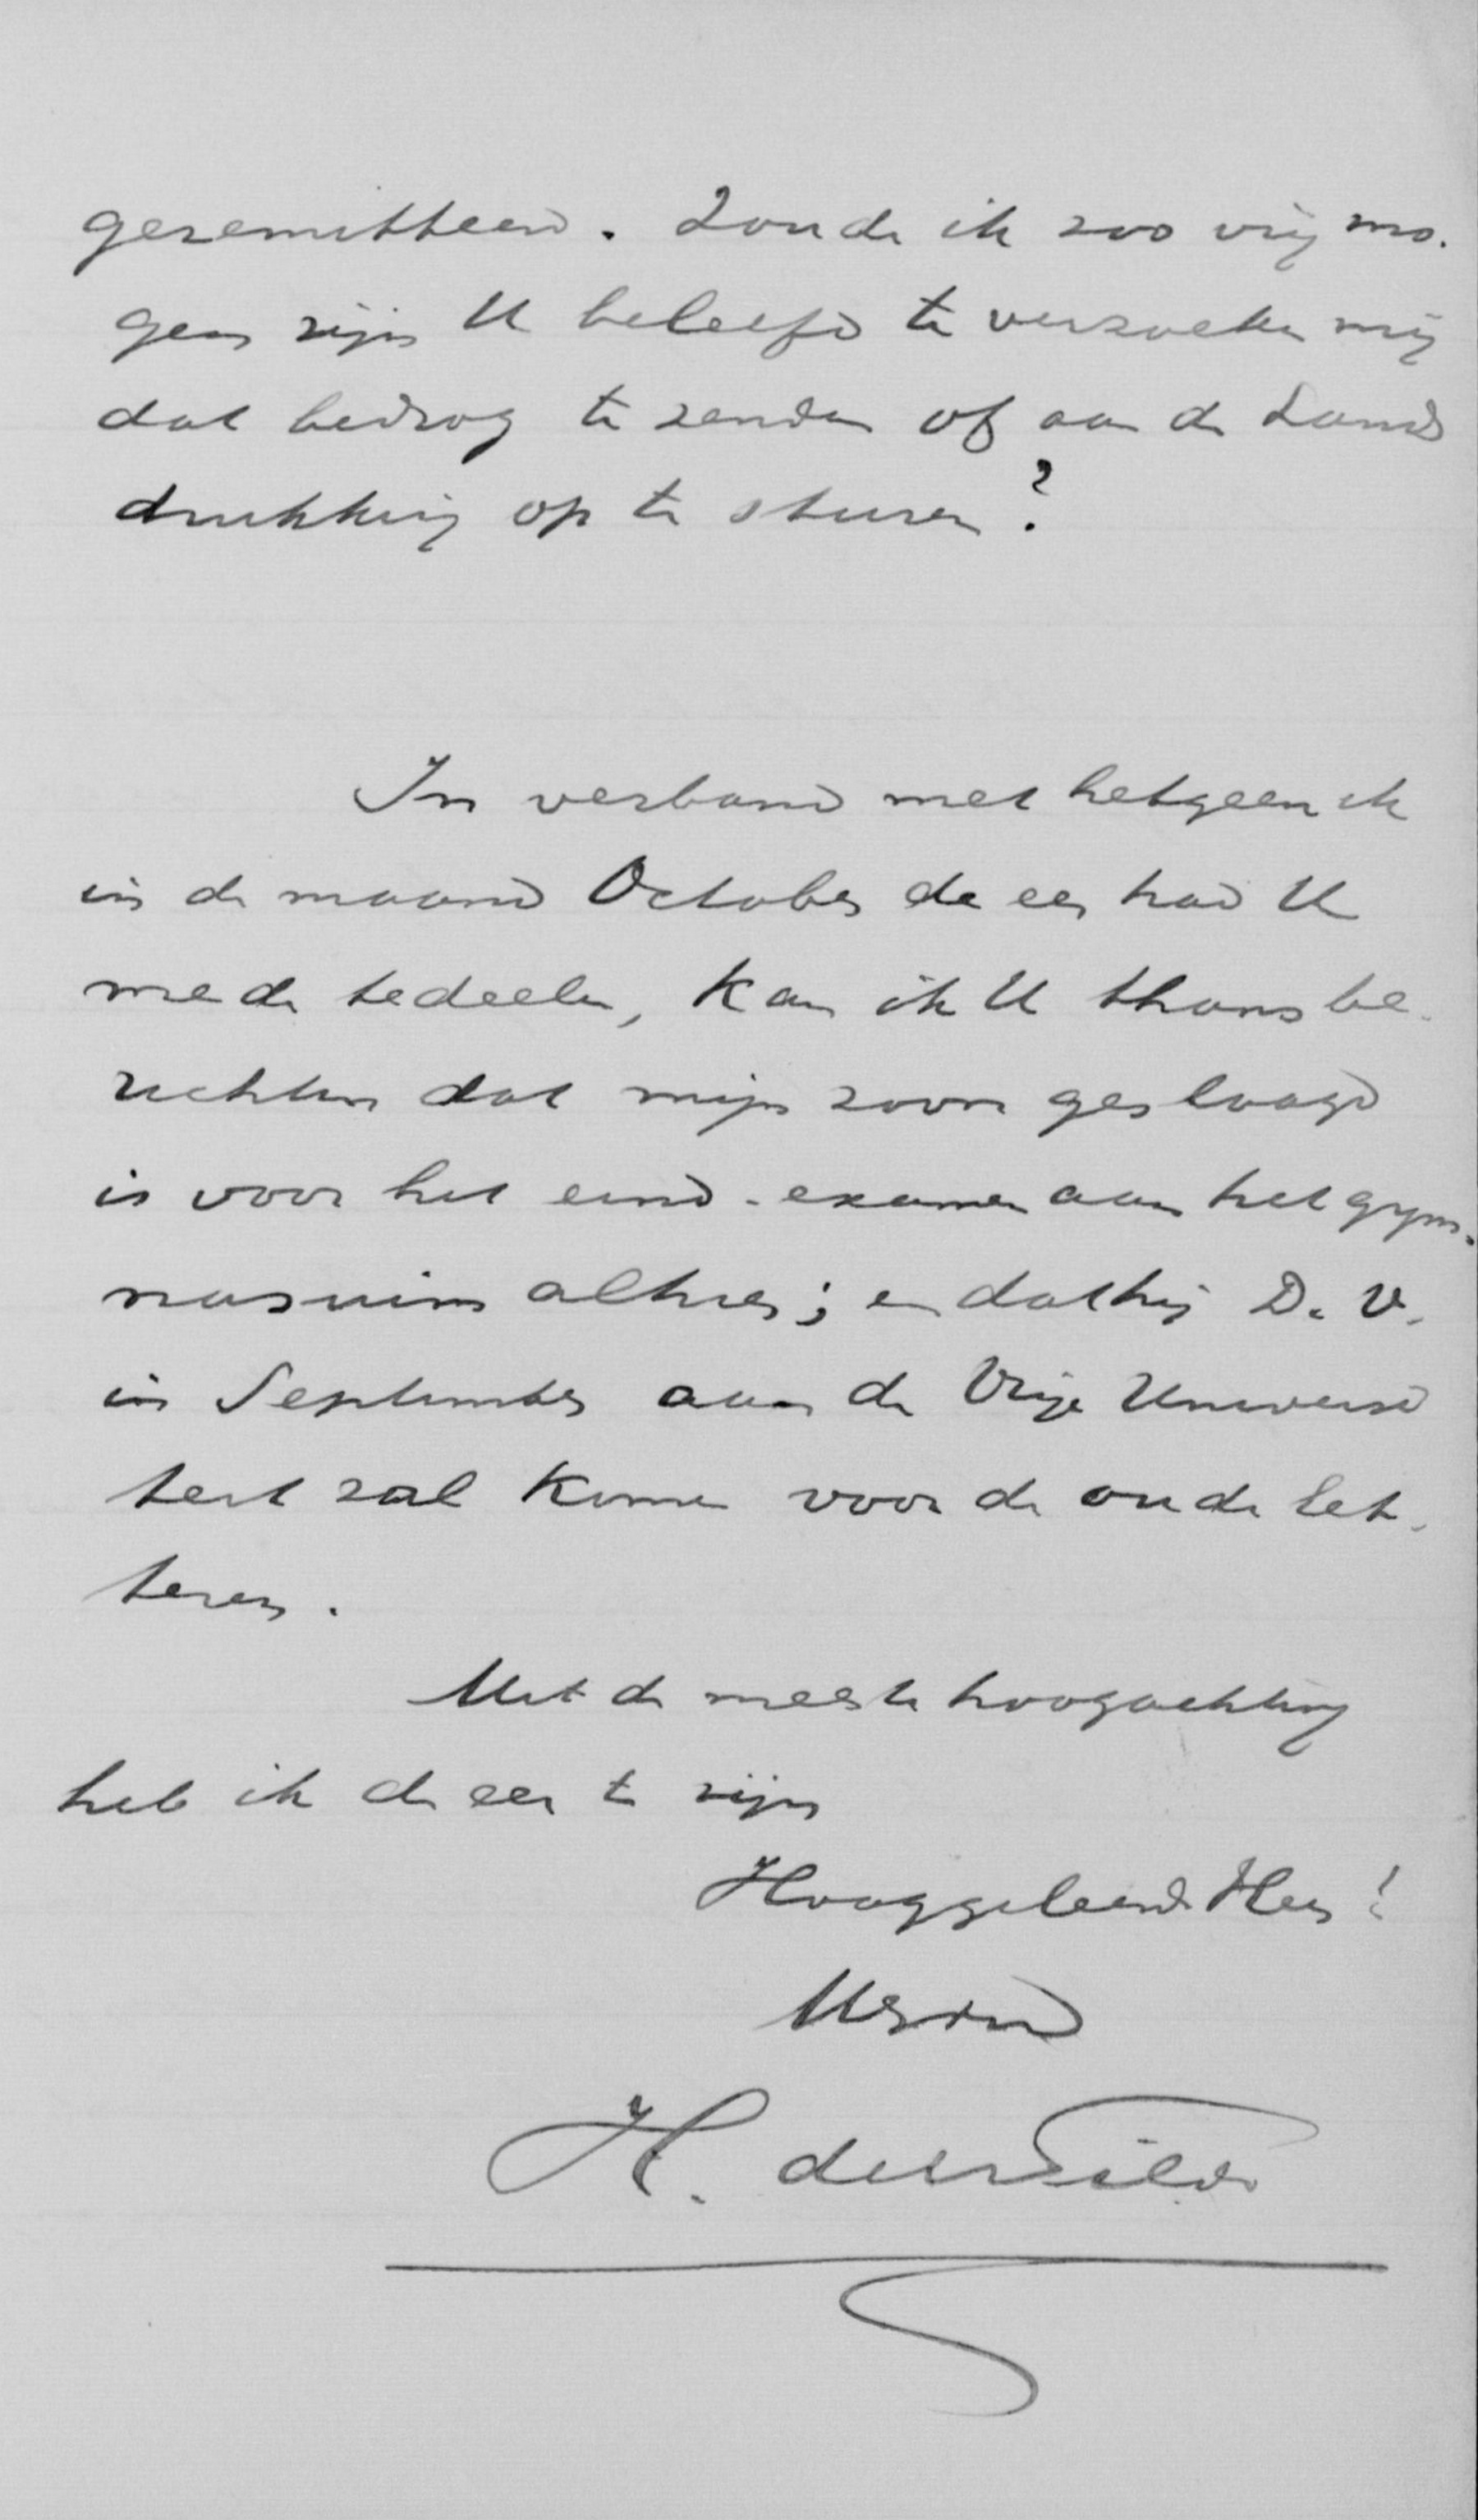 geremitteerd. Zoude ik zoo vrij mo-
gen zijn U beleefd te verzoeken mij
dat bedrag te zenden of aan de Lands
drukkerij op te sturen?
In verband met hetgeen ik
in de maand October de eer had U
mede tedeelen, kan ik U thans be-
richten dat mijn zoon geslaagd
is voor het eind-examen aan het gym-
nasium alhier; en dat hij D. V.
in September aan de Vrije Universi
teit zal komen voor de oude let-
teren.
Met de meeste hoogachting
heb ik de eer te zijn
Hooggeleerde Heer!
Uw dw
H. de Wilde